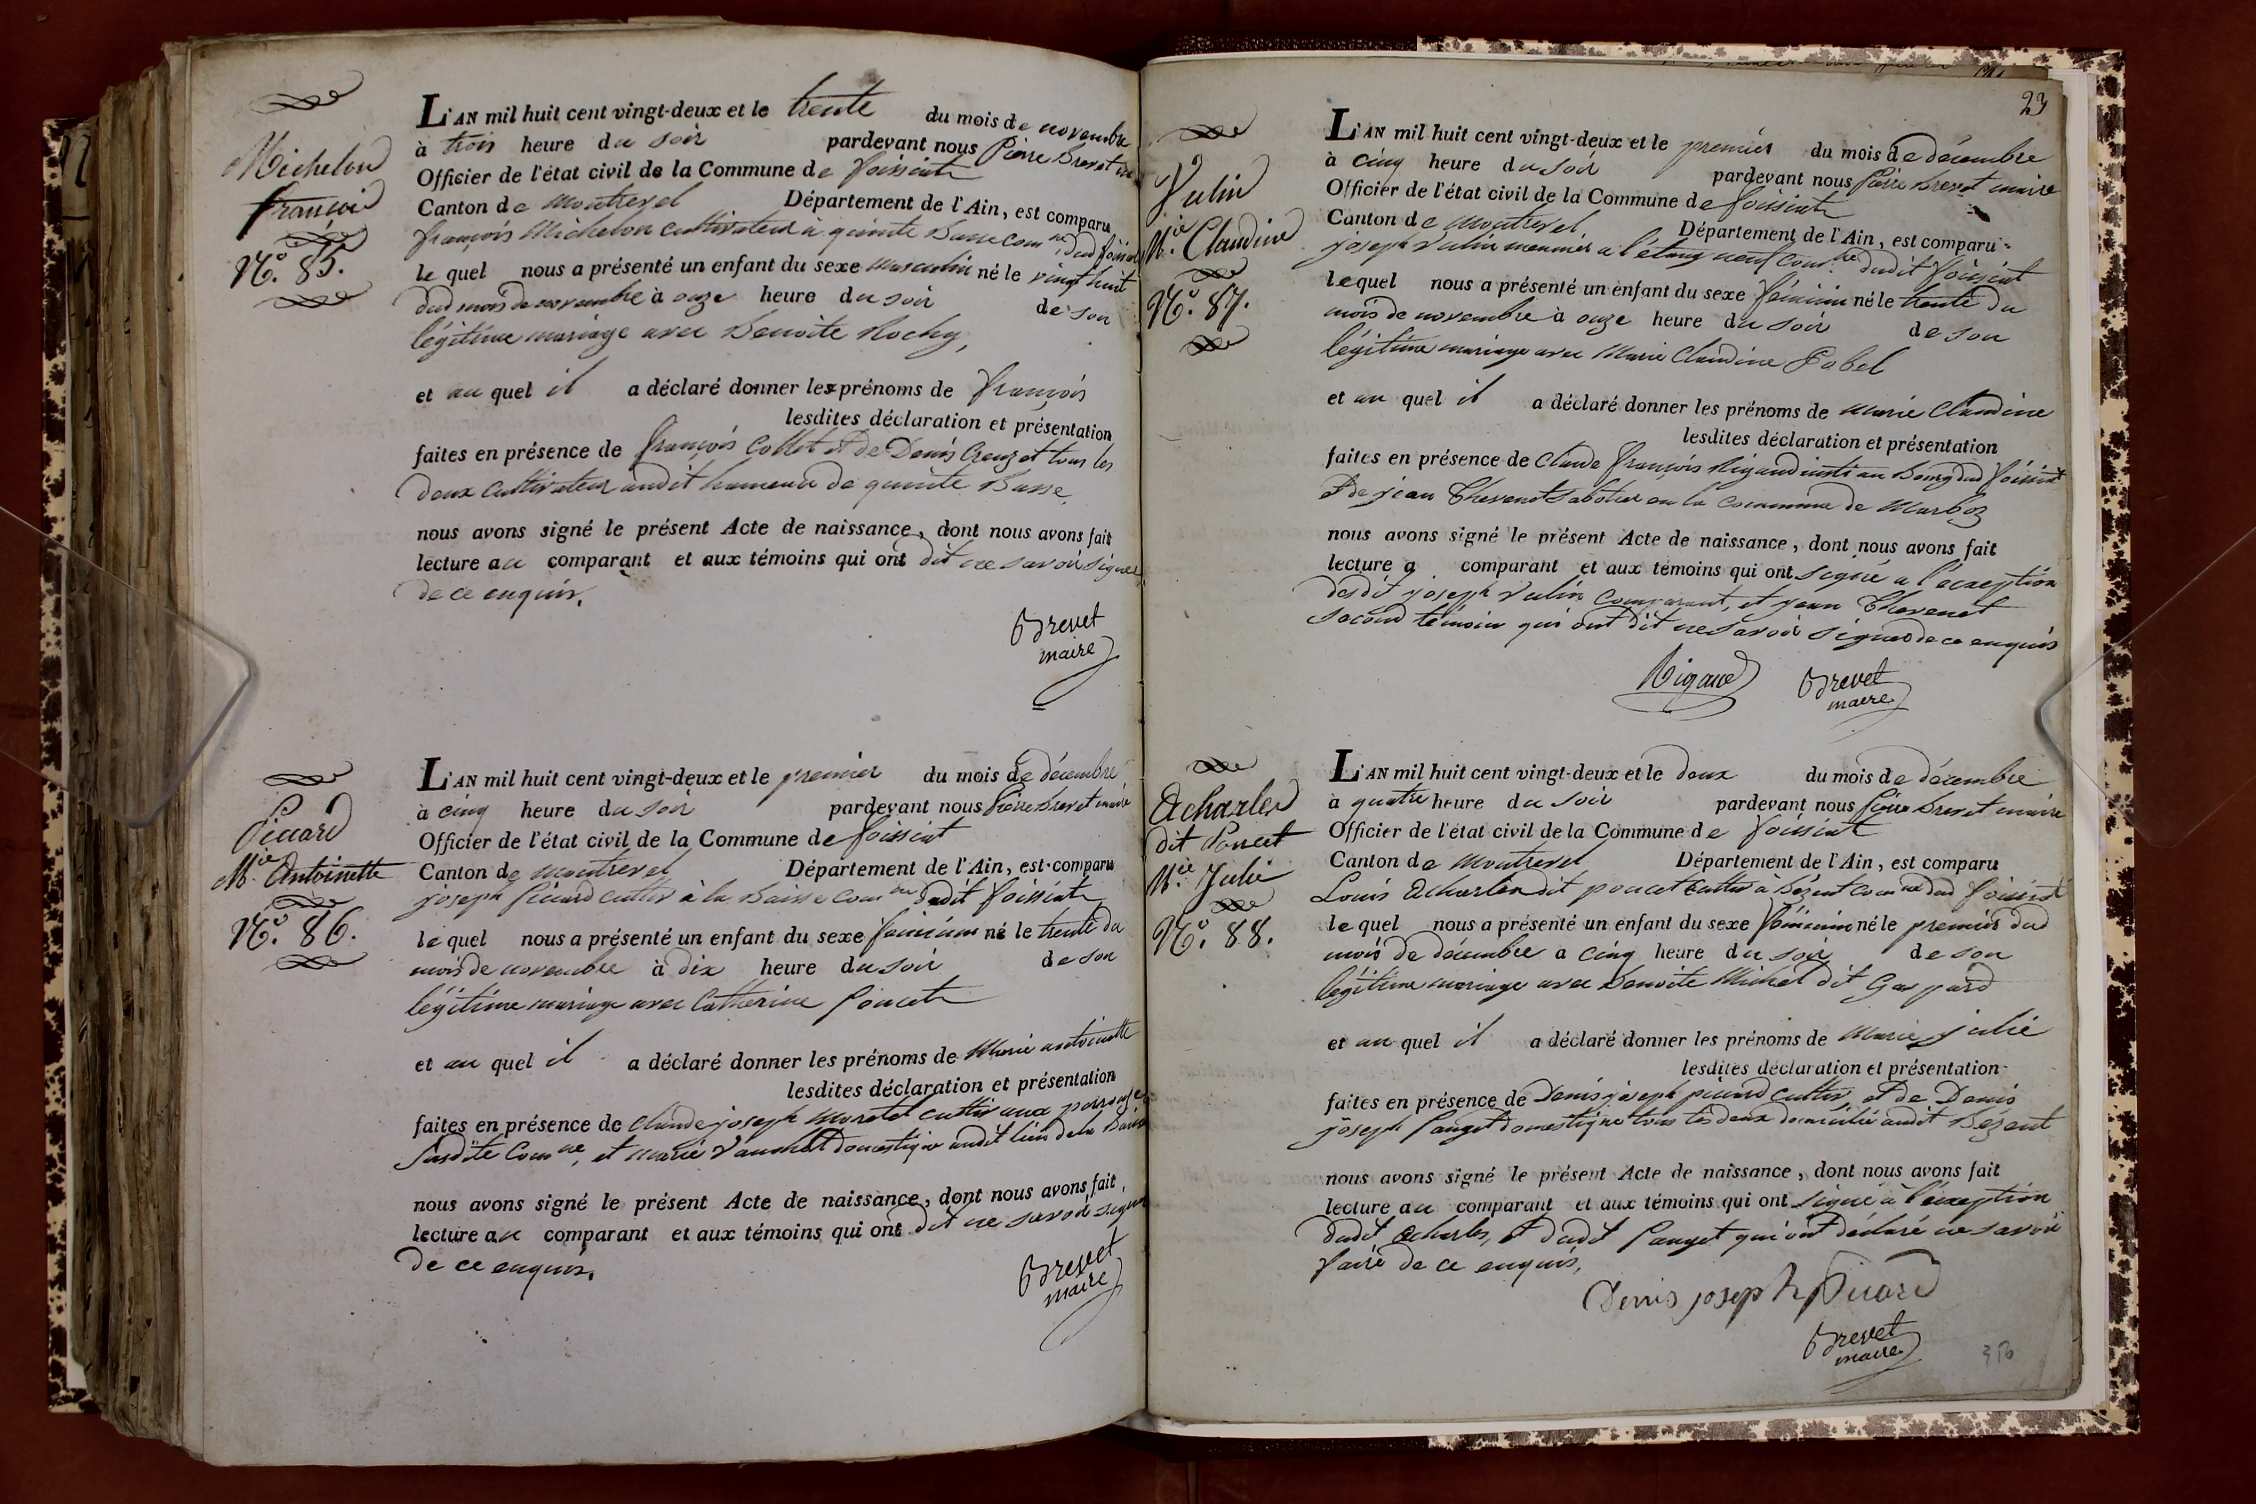 Michelon
françois
N.º 85.
L'AN mil huit cent vingt-deux et le trente du mois de novembre
à trois heure du soir pardevant nous Pierre Brevet
Officier de l'état civil de la Commune de foissiat
Canton de montrevel Département de l'Ain, est comparu
françois Michelon cultivateur à quinte Basse com.ne dud foissiat
le quel nous a présenté un enfant du sexe masculin né le vingt huit
dud mois de novembre à onze heure du soir de son
légitime mariage avec Benoite Rochy,
et au quel il a déclaré donner les prénoms de françois
lesdites déclaration et présentation
faites en présence de françois Collet et de Denis Creuzet tous les
deux cultivateur audit hameau de quinte Basse
nous avons signé le présent Acte de naissance, dont nous avons fait
lecture au comparant et aux témoins qui ont dit ne savoir signer
de ce enquis.
Brevet
maire
Picard
M.ie Antoinette
N.º 86.
L'AN mil huit cent vingt-deux et le premier du mois de décembre
à cinq heure du soir pardevant nous Pierre Brevet maire
Officier de l'état civil de la Commune de foissiat
Canton de montrevel Département de l'Ain, est comparu
joseph Picard cultiv à la Baisse com.ne dudit foissiat
le quel nous a présenté un enfant du sexe féminin né le trente du
mois de novembre à dix heure du soir de son
légitime mariage avec Catherine Poncet
et au quel il a déclaré donner les prénoms de Marie antoinette
lesdites déclaration et présentation
faites en présence de Claude joseph Moretel cultiv aux
susdite Com.ne, et Marie Vauchet domestique audit lieu de la Baisse
nous avons signé le présent Acte de naissance, dont nous avons fait
lecture au comparant et aux témoins qui ont dit ne savoir signer
de ce enquis.
Brevet
maire
23
Vulin
M.ie Claudine
N.º 87.
L'AN mil huit cent vingt-deux et le premier du mois de décembre
à cinq heure du soir pardevant nous Pierre Brevet maire
Officier de l'état civil de la Commune de foissiat
Canton de Montrevel Département de l'Ain, est comparu
joseph Vulin meunier a l'étang neuf com.ne dudit foissiat
lequel nous a présenté un enfant du sexe féminin né le trente du
mois de novembre à onze heure du soir de son
légitime mariage avec Marie Claudine Pobel
et au quel il a déclaré donner les prénoms de Marie Claudine
lesdites déclaration et présentation
faites en présence de Claude françois Rigaud insti au Bourg dud foissiat
et de jean Thevenet sabotier en la commune de Marboz
nous avons signé le présent Acte de naissance, dont nous avons fait
lecture a comparant et aux témoins qui ont signé a l'exception
dudit joseph Vulin comparant, et jean Thevenet
second témoin qui ont dit ne savoir signer de ce enquis
Rigaud
Brevet
maire
Acharles
dit Poncet
M.ie Julie
N.º 88.
L'AN mil huit cent vingt-deux et le deux du mois de décembre
à quatre heure du soir pardevant nous Pierre Brevet maire
Officier de l'état civil de la Commune de foissiat
Canton de Montrevel Département de l'Ain, est comparu
Louis Acharles dit poncet cultiv à Bezent com.ne dud foissiat
le quel nous a présenté un enfant du sexe féminin né le premier dud
mois de décembre a cinq heure du soir de son
légitime mariage avec Benoite Michel dit Gaspard
et au quel il a déclaré donner les prénoms de Marie julie
lesdites déclaration et présentation
faites en présence de Denis joseph picard cultiv, et de Denis
joseph Pauget domestique tous les deux domicilié audit Bezent
nous avons signé le présent Acte de naissance, dont nous avons fait
lecture au comparant et aux témoins qui ont signé à l'exception
dudit Acharles, et dudit Pauget qui ont déclaré ne savoir
faire de ce enquis,
Denis joseph Picard
Brevet
maire